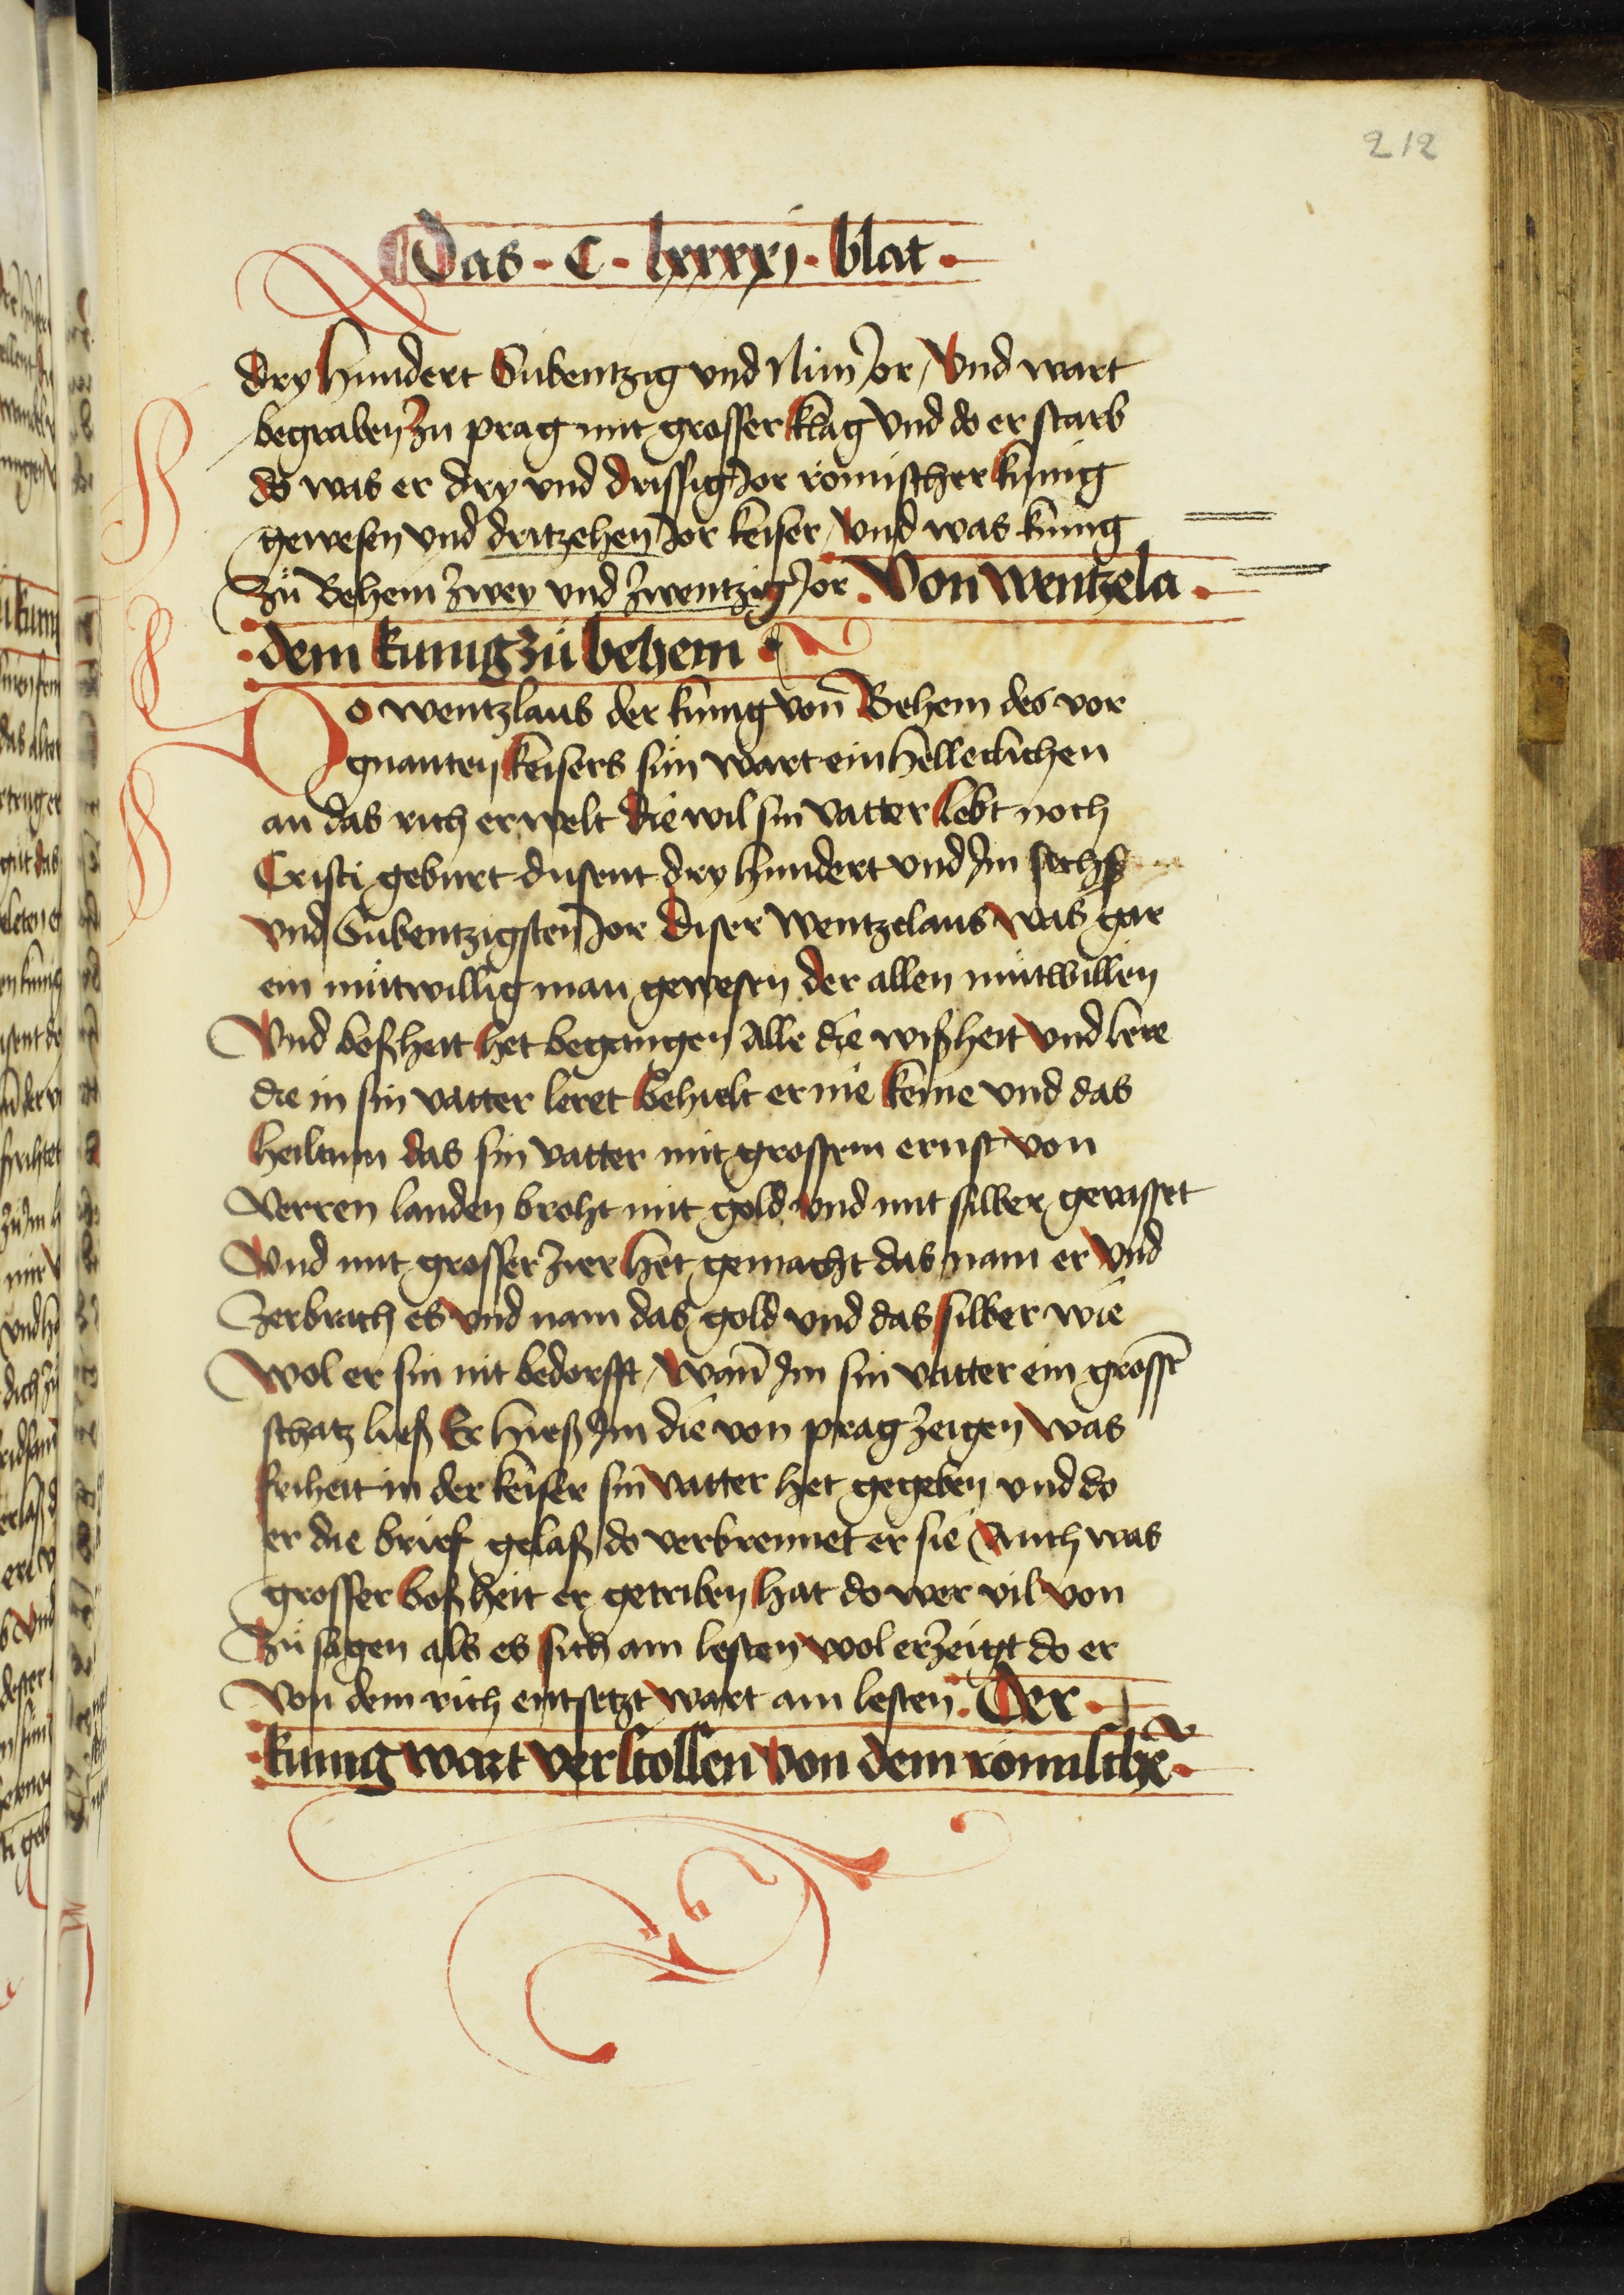 212
Das · C · lxxxxj · blat ·
dry hundert Subentzig vnd Nün Jor / Vnd wart
begraben zu prag mit grosser klag Vnd do er starb
do was er dry vnd drissig Jor römischer kunig
gewesen vnd dritzehen Jor keiser / vnd was kunig
Zů Behem zwey vnd zwentzig Jor · Von wentzela ·
· dem kunig zů behem ·
Do wentzlaus der kunig von̄ Behem des vor
gnanten keisers sun wart einhelleclichen
an das rich erwelt die wil sin vatter lebt noch
Cristi geburt dusent dry hundert vnd Jm sechs
vnd Subentzigsten Jor diser wentzelaus was gar
ein můtwillig man gewesen der allen můtwillen
Vnd boßheit het begangen Alle die wißheit vnd lere
die in sin vatter leret behielt er nie keine vnd das
heiltum das sin vatter mit grossem ernst von
Verren landen broht mit gold vnd mit silber gevasset
Vnd mit grosser zier het gemacht das nam er Vnd
Zerbrach es vnd nam das gold vnd das silber wie
Wol er sin nit bedorfft / Wan̄ Jm sin vatter ein grossē
schatz ließ Er hieß Jm die von prag zeigen was
friheit in der keiser sin vatter het gegeben vnd do
er die brief gelaß do verbrennet er sie Auch was
grosser boßheit er getriben hat do wer vil von
Zů sagen als es sich am lesten wol erzeigt do er
Von dem rich entsetzt wart am lesten · Der ·
· kunig wart verstossen von dem römischē ·